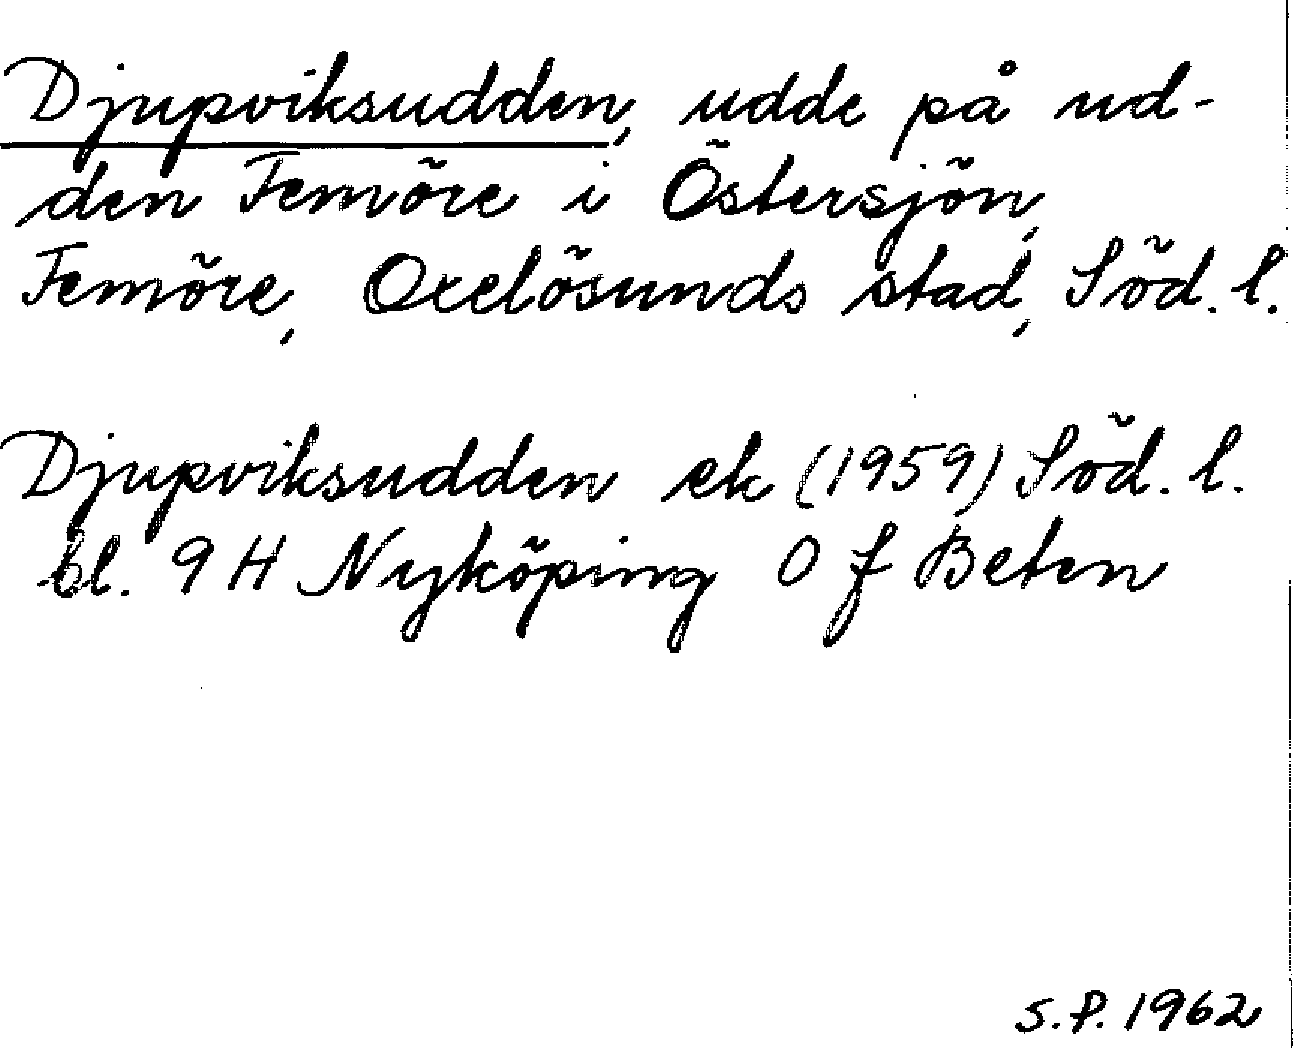 Djupviksudden, udde på ud-
den Femöre i Östersjön,
Femöre, Oxelösunds stad, Söd. l.
Djupviksudden ek (1959) Söd. l.
bl. 9 H Nyköping O f Beten
S.P. 1962